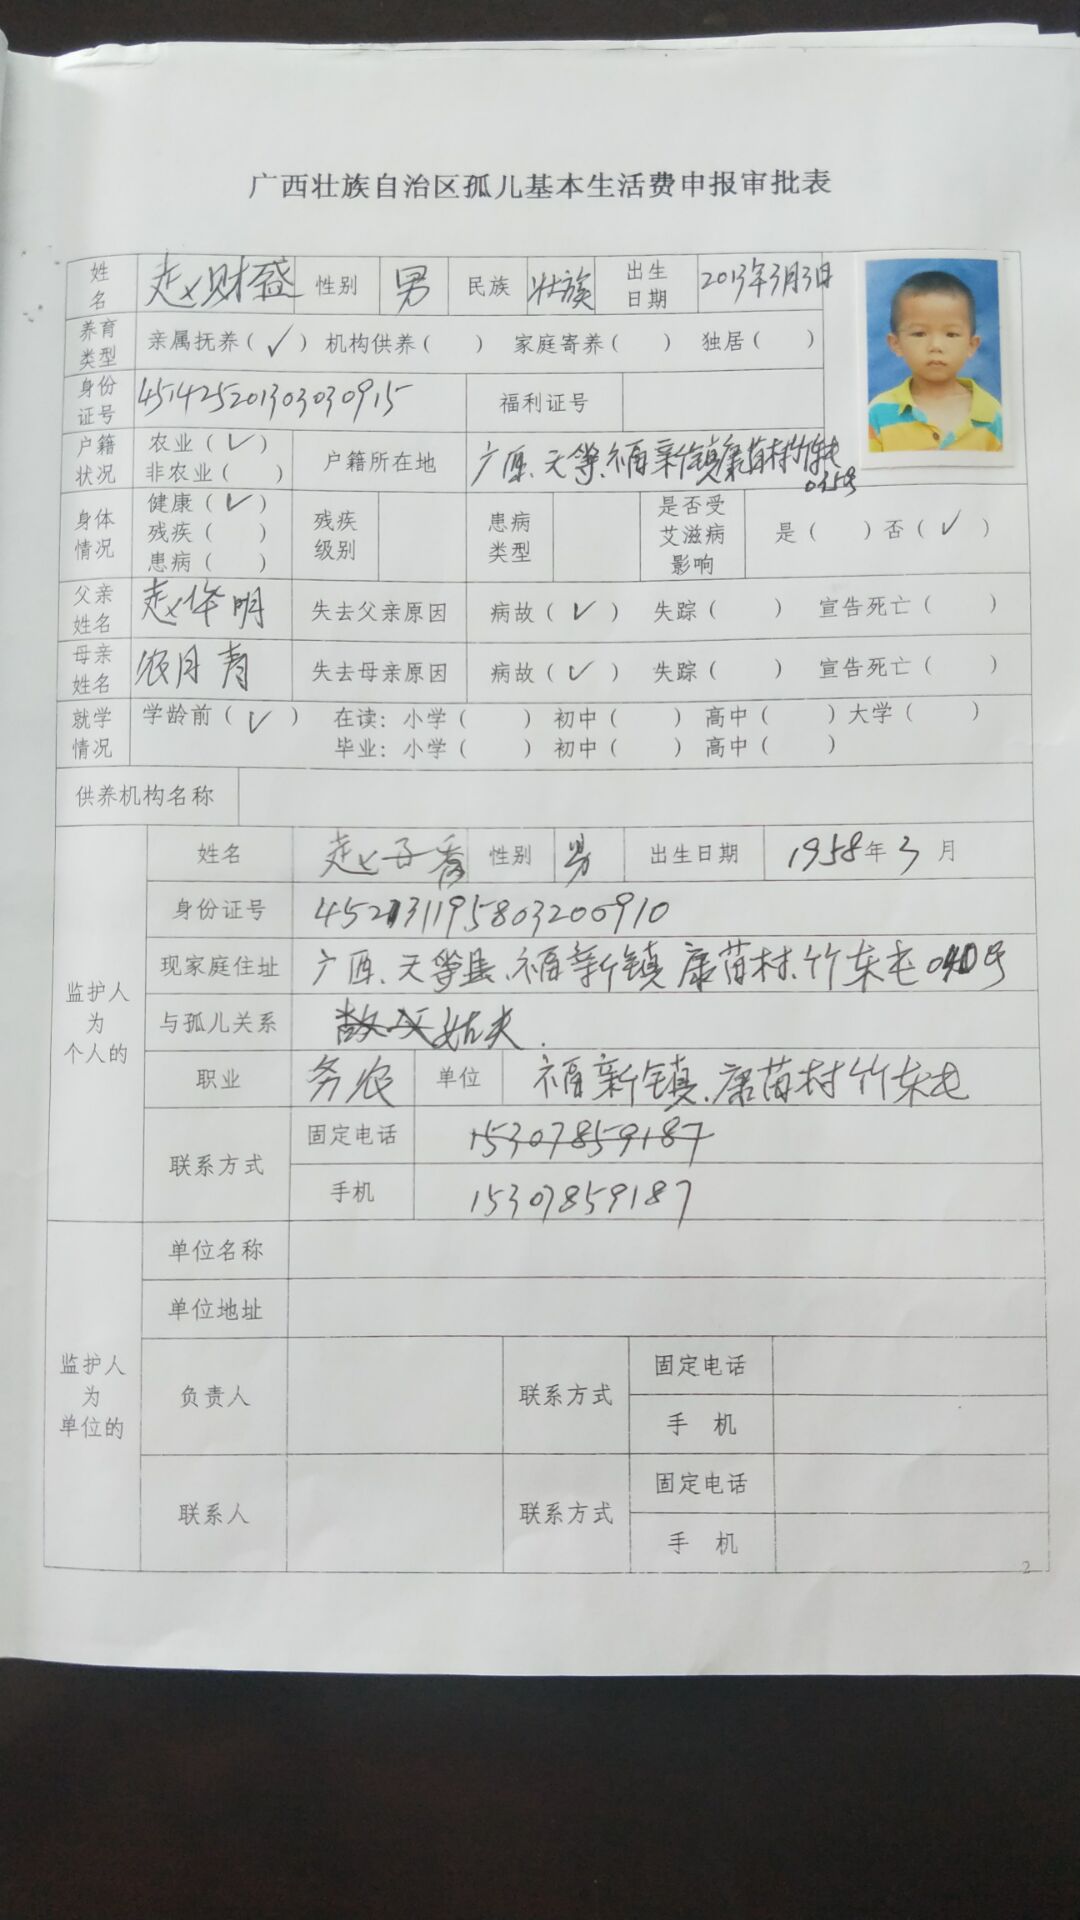 广西壮族自治区孤儿基本生活费申报审批表
姓名 赵财盛 性别 男 民族 壮族 出生日期 2013年3月3日
养育类型 亲属抚养（✓）机构供养（ ） 家庭寄养（ ） 独居（ ）
身份证号 451425201303030915 福利证号
户籍状况 农业（✓） 非农业（ ） 户籍所在地 广西、天等、福新镇康苗村竹东屯
身体情况 健康（✓） 残疾（ ） 患病（ ） 残疾级别 患病类型 是否受艾滋病影响 是（ ）否（✓）
父亲姓名 赵华明 失去父亲原因 病故（✓） 失踪（ ） 宣告死亡（ ）
母亲姓名 农月青 失去母亲原因 病故（✓） 失踪（ ） 宣告死亡（ ）
就学情况 学龄前（✓） 在读：小学（ ） 初中（ ） 高中（ ）大学（ ）
毕业：小学（ ） 初中（ ） 高中（ ）
供养机构名称
监护人为个人的
姓名 赵子 性别 男 出生日期 1958年3月
身份证号
现家庭住址 广西、天等县、福新镇康苗村、竹东屯
与孤儿关系 姑夫.
职业 务农 单位 福新镇、康苗村竹东屯
联系方式 固定电话 15307859187
手机 15307859187
监护人为单位的
单位名称
单位地址
负责人 联系方式 固定电话
手 机
联系人 联系方式 固定电话
手 机
2